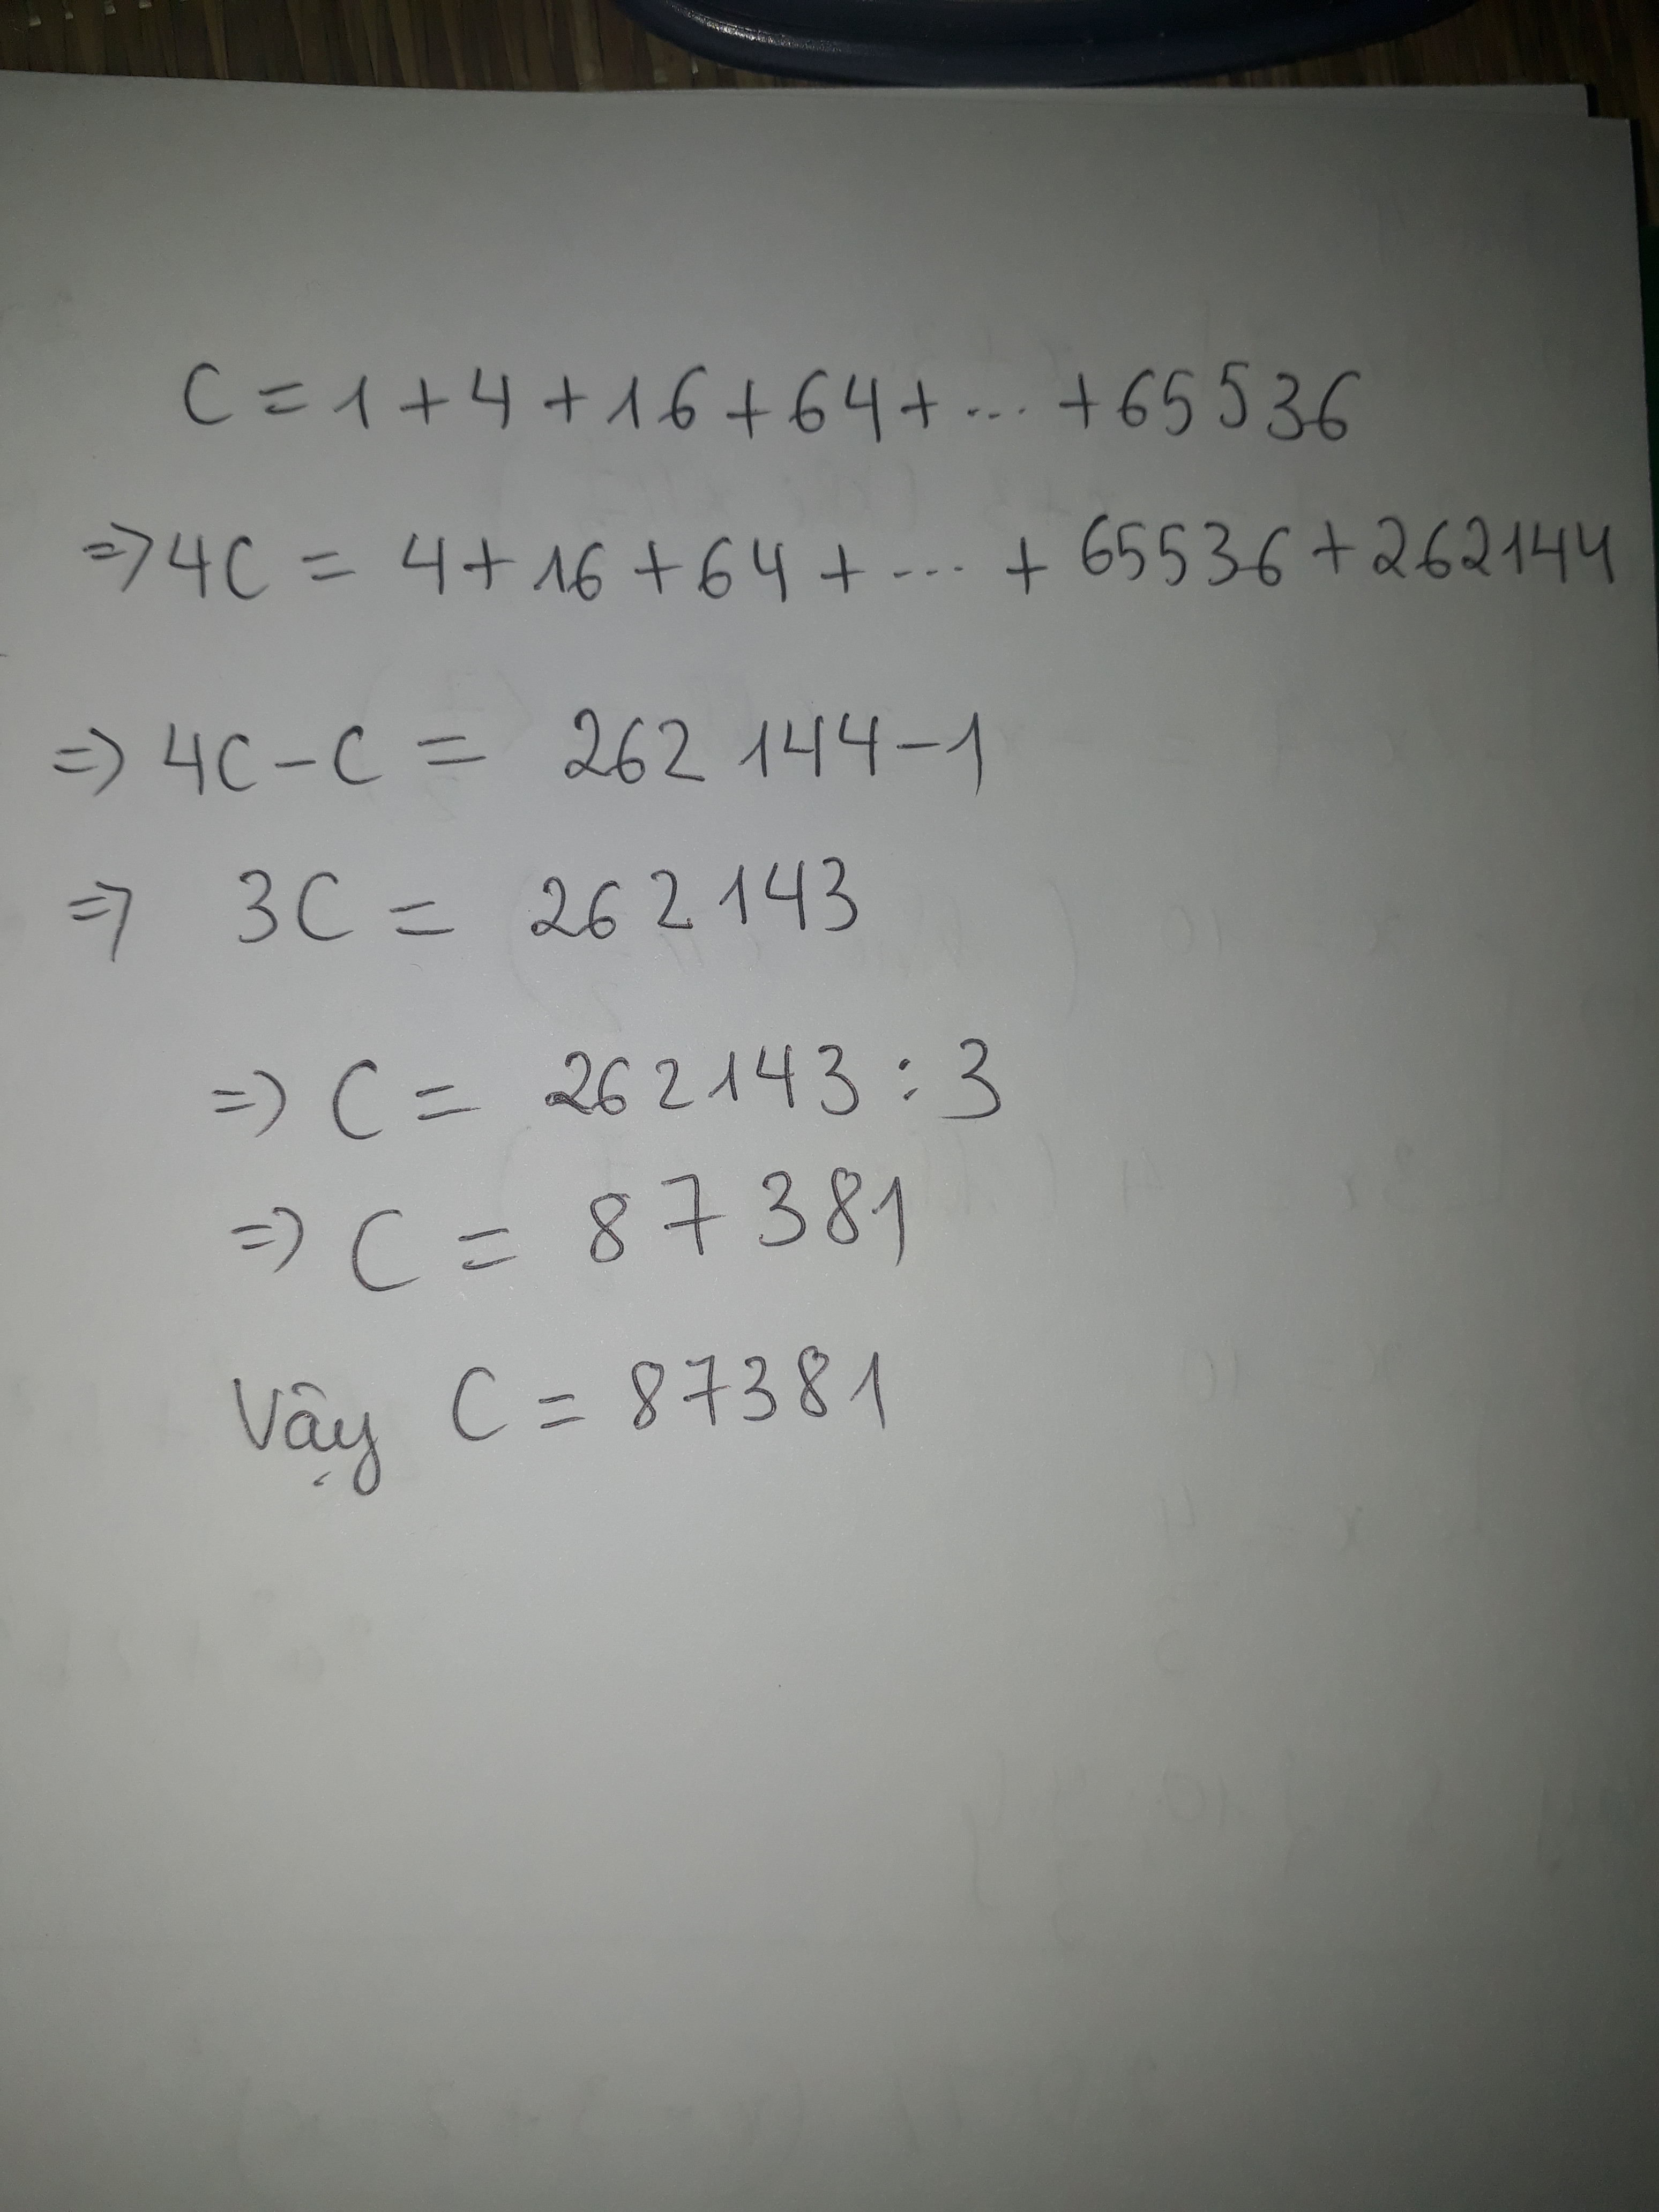 C = 1 + 4 + 16 + 64 + ... + 65536
=> 4C = 4 + 16 + 64 + ... + 65536 + 262144
=> 4C - C = 262144 - 1
=> 3C = 262143
=> C = 262143 : 3
=> C = 87381
Vậy C = 87381